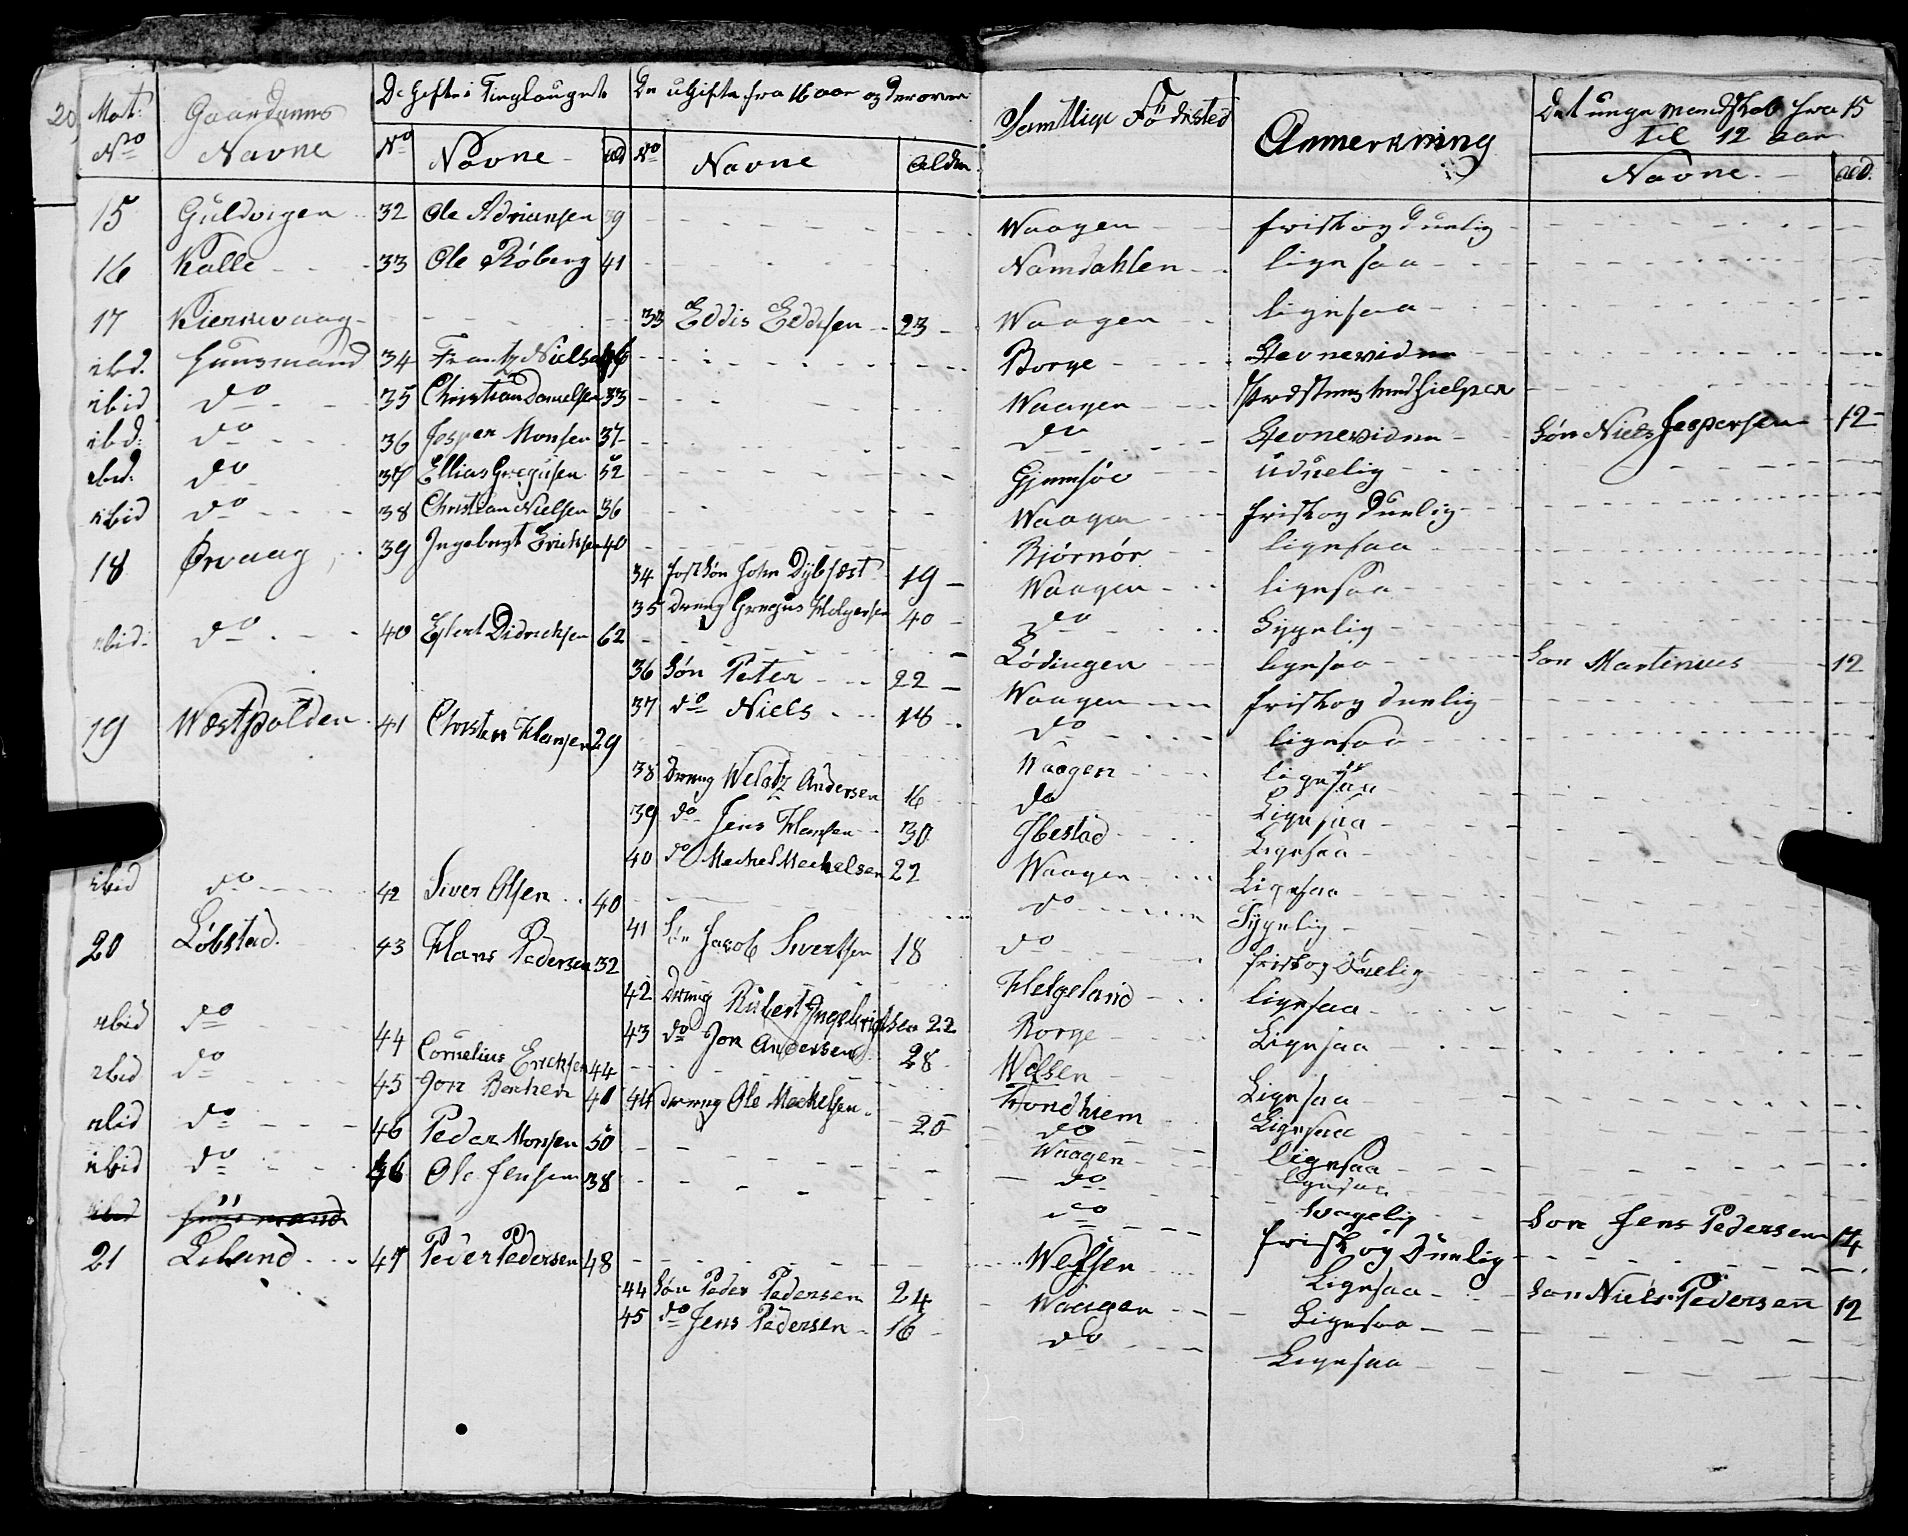 20
Mat: No | Gaardenes Navne | De Gifte i Tinglauget | De uGifte fra 16 aar og derover | Samtlige Fødested | Anmerkning | Det unge Mandskab fra 15 til 12 aar
No | Navne | ald | No | Navne | Alder | Navne | ald.
15 Guldvigen 32 Ole Adriansen 39 Waagen frisk og duelig
16 Kalle 33 Ole Røberg 41 Namdahlen ligesaa
17 Kierrevaag 33 Eddis Eddisen 23 Waagen ligesaa
ibd. Huusmand 34 Frantz Nielsen Borge Stevnevidne
ibid do 35 Christian Danielsen 33 Waagen Medhielper
ibd: do 36 Jesper Monsen 37 do Stevnevidne Søn Niels Jespersen 12
ibd: do 37 Ellias Gregusen 52 Gjimsøe uduelig
ibid do 38 Christian Nielsen 36 Waagen frisk og duelig
18 Ørvaag 39 Ingebrgt Ericksen 40 Bjørnør ligesaa
34 fostSøn John Dybfæst 19 Waagen ligesaa
35 Dreng Gregus Holgersen 40 do Sygelig
ibid: do 40 Eylert Didrichsen 62 Lødingen ligesaa Søn Martinus 12
36 Søn Peter 22 Waagen frisk og duelig
37 do Niels 18 do ligesaa
19 Westpolden 41 Christen Hansen 29 Waagen ligesaa
38 Dreng Andersen 16 do Ligesaa
39 do Jens Hansen 30 Ibestad Ligesaa
40 do Mechel Mechelsen 22 Waagen Ligesaa
ibid do 42 Siver Olsen 40 do Sygelig
41 Søn Jacob Sivertsen 18 do frisk og duelig
20 Løbstad 43 Hans Pedersen 32 Helgeland ligesaa
42 Dreng Ribert Ingebrigtsen 22 Borge Ligesaa
43 do Jon Andersen 28 Wefsen Ligesaa
ibid do 44 Cornelius Ericksen 44 Trondhiem Ligesaa
ibid do 45 Jon Berhen 40 do ligesaa
44 dreng Ole Mechelsen 20 Waagen ligesaa
ibid do 46 Peder Monsen 50 do Svagelig Søn Jens Pedersen 14
ibid do 46 Ole Jensen 38 do frisk og Duelig
ibid Huusmand
21 Lilund 47 Peder Pedersen 48 Wefsen Ligesaa Søn Niels Pedersen 12
44 Søn Peder Pedersen 24 Waagen Ligesaa
45 do Jens Pedersen 16 do Ligesaa